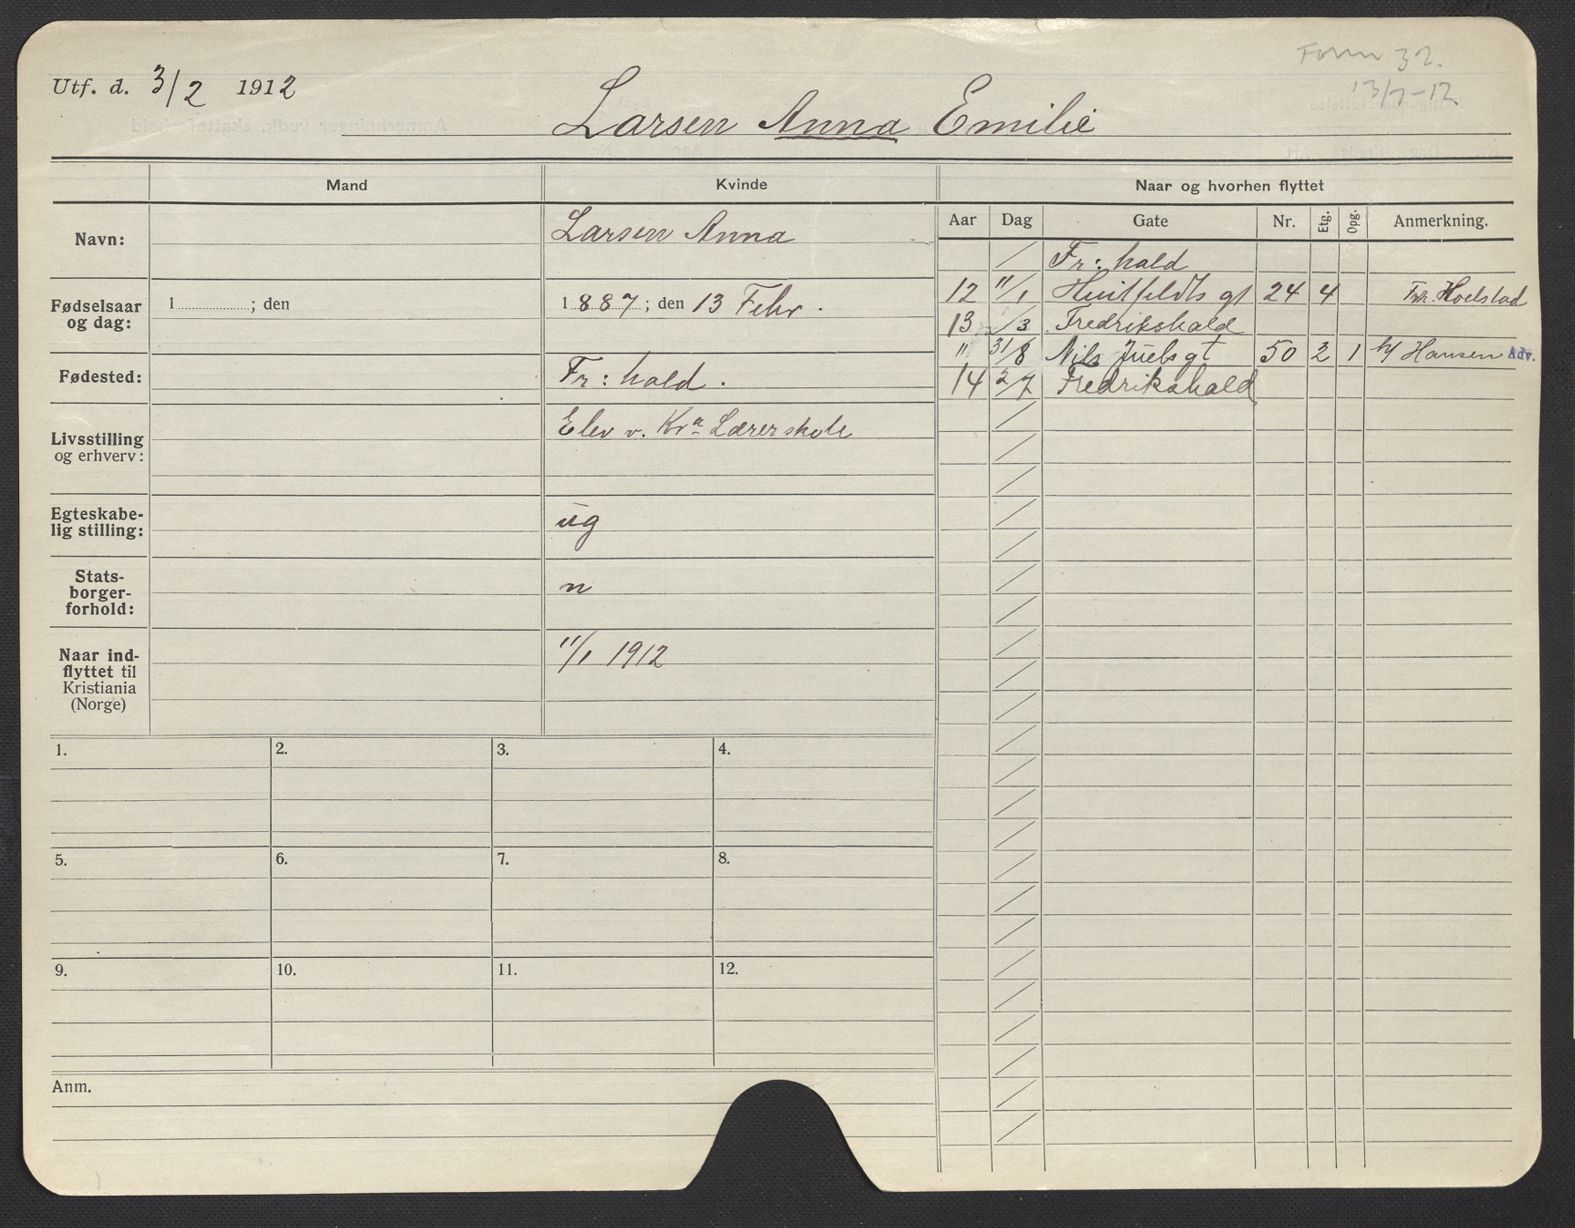 Form 32.
13/7-12
Utf. d. 3/2 1912
Larsen Anna Emilie
Mand
Kvinde
Naar og hvorhen flyttet
Navn:
Larsen Anna
Aar Dag Gate Nr. Etg. Opg. Anmerkning.
/ Fr: hald
12 11/1 Huitfeldts gt 24 4 Hoelstad
13 /3 Fredrikshald
" 31/8 Nils Juels gt 50 2 1 h/ Hansen Adv.
14 2/7 Fredrikshald
Fødselsaar
og dag:
1 ; den
1887; den 13 Febr.
Fødested:
Fr: hald.
Livsstilling
og erhverv:
Elev v. Kra Lærerskole
Egteskabe-
lig stilling:
ug
Stats-
borger-
forhold:
n
Naar ind-
flyttet til
Kristiania
(Norge)
11/1 1912
1. 2. 3. 4.
5. 6. 7. 8.
9. 10. 11. 12.
Anm.